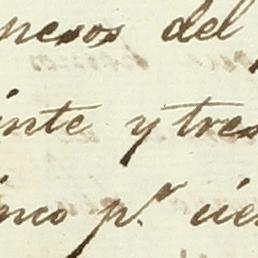 pesos del
inte y tres
inco p.r cien